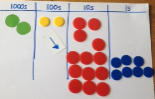 1000s 100s 10s 1s